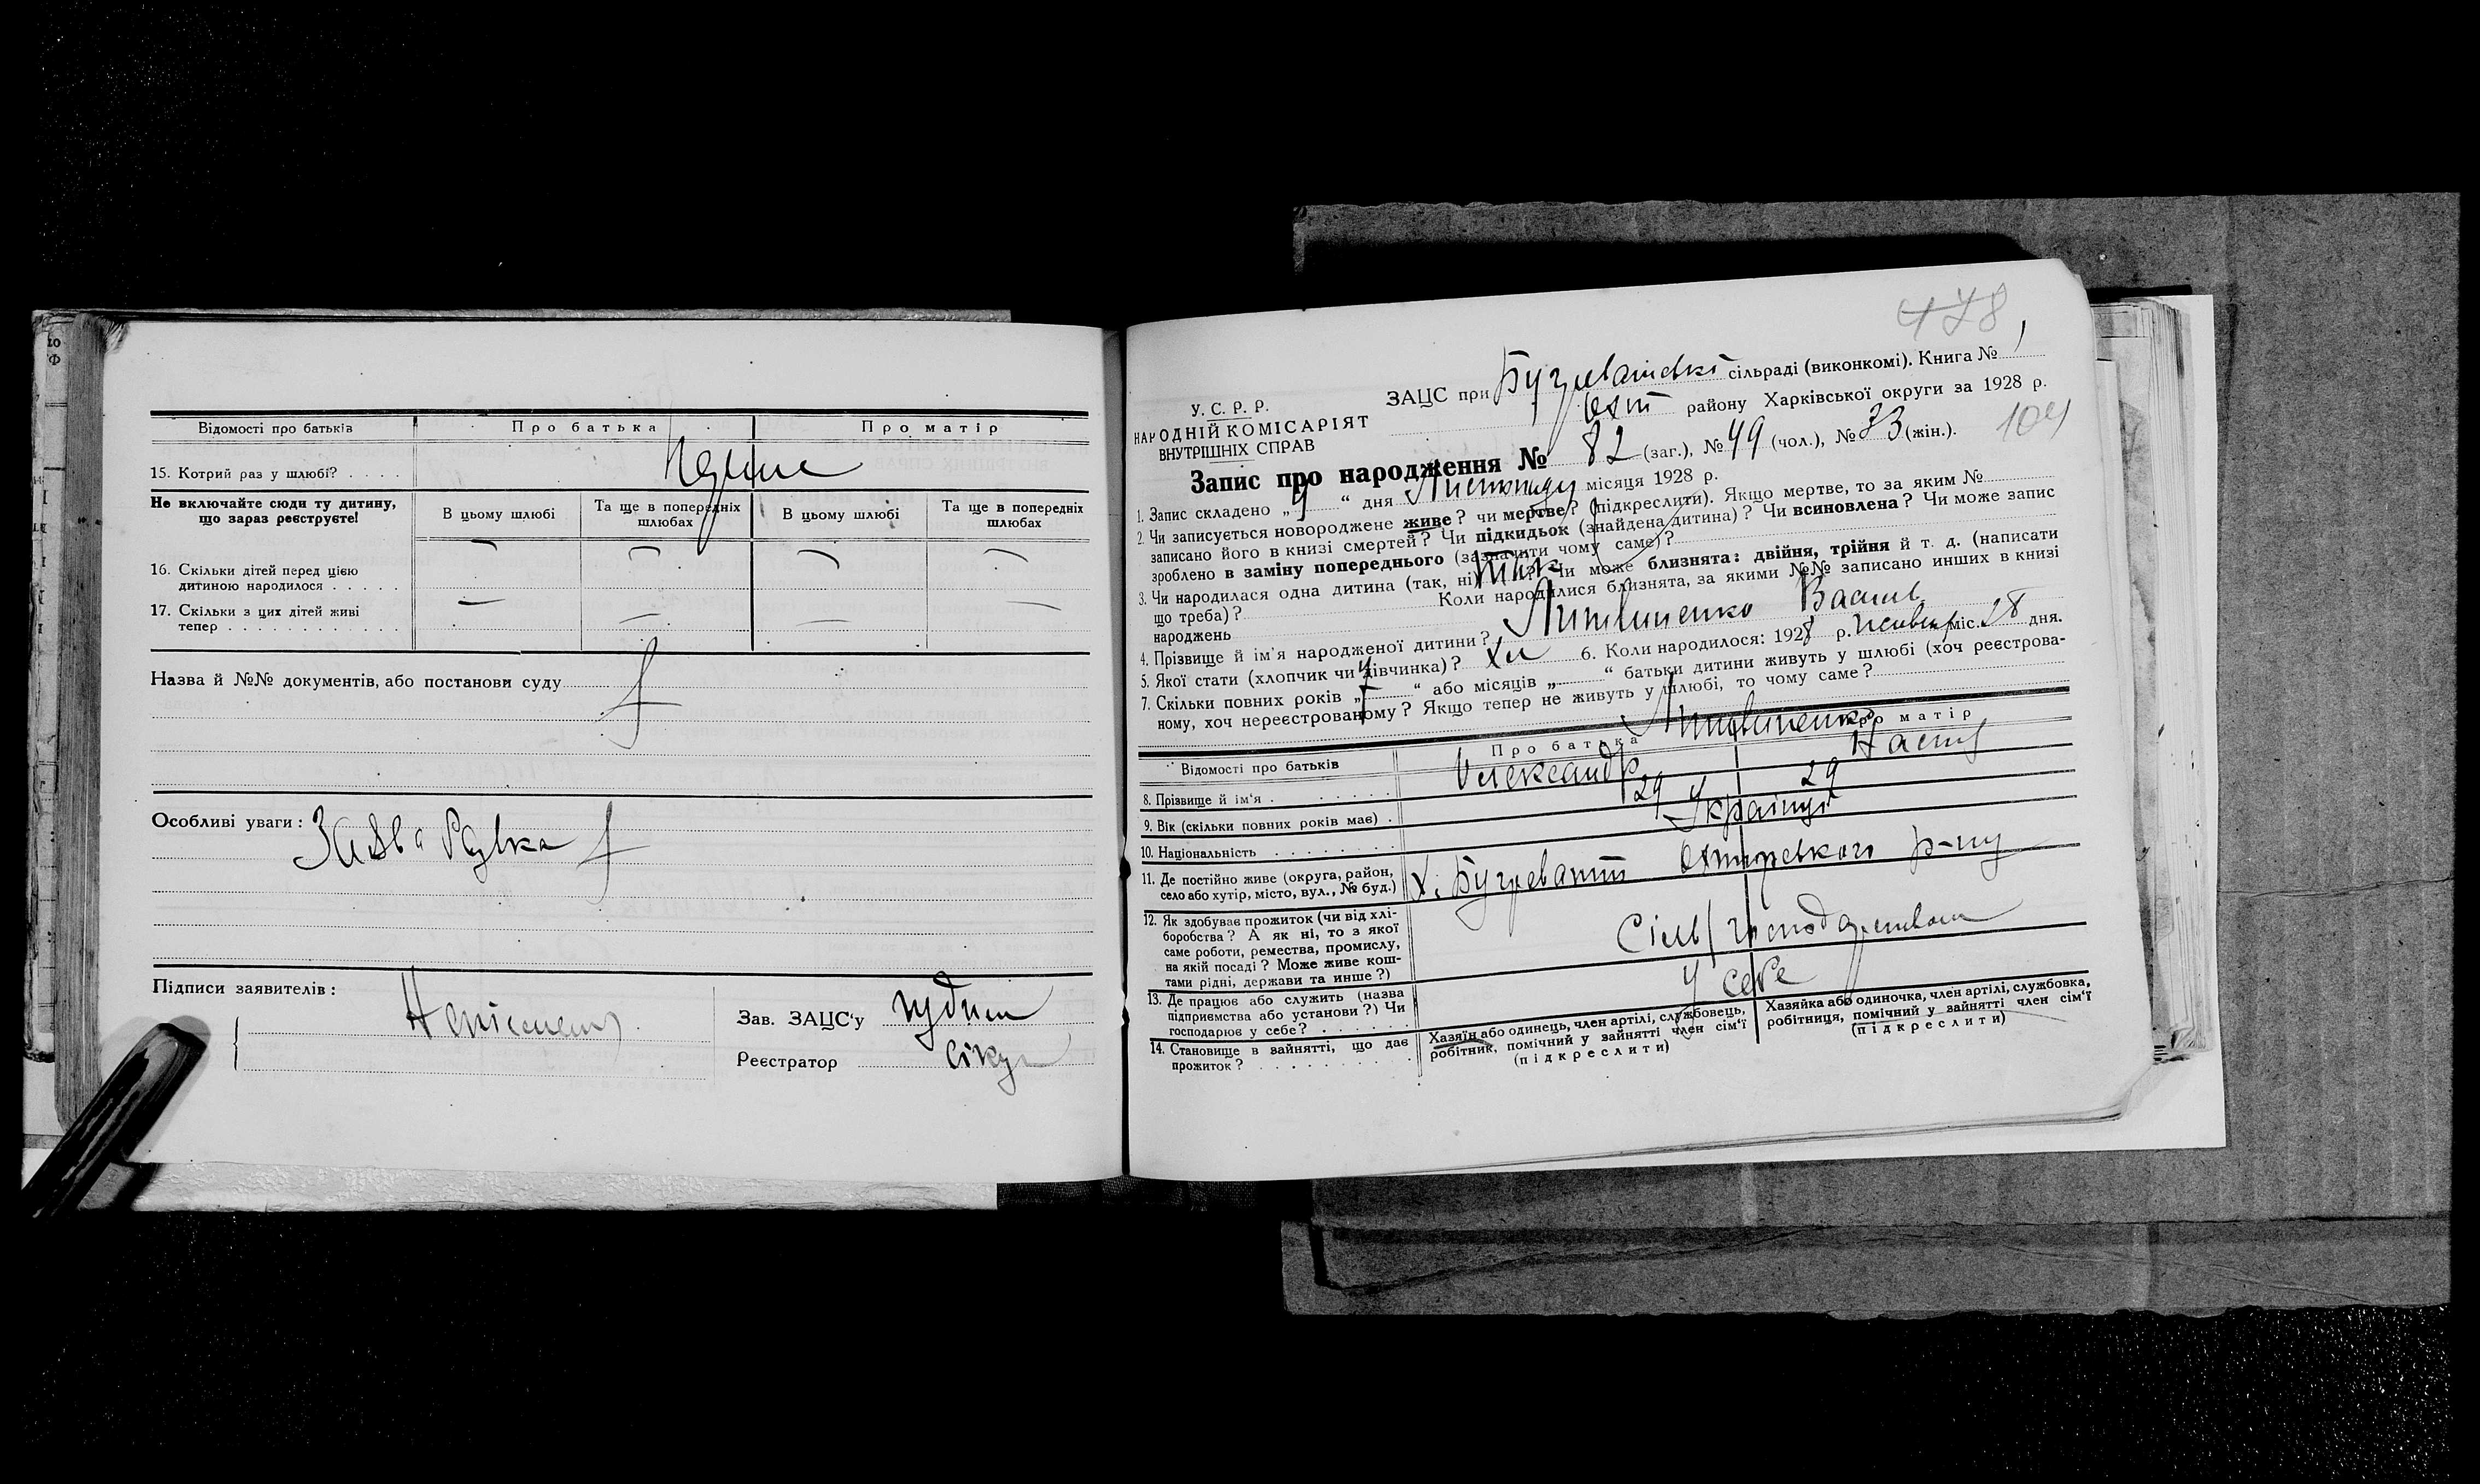 Відомості про батьків
Про батька
Про матір
15. Котрий раз у шлюбі? . . . .
Не включайте сюди ту дитину,
що зараз реєструєте!
В цьому шлюбі
Та ще в попередніх
шлюбах
В цьому шлюбі
Та ще в попередніх
шлюбах
16. Скільки дітей перед цією
дитиною народилося . . . . .
17. Скільки з цих дітей живі
тепер . . . . . . . . . . . .
Назва й №№ документів, або постанови суду
Особливі уваги:
Підписи заявителів:
Зав. ЗАЦС'у
Реєстратор
478
У. С. Р. Р.
НАРОДНІЙ КОМІСАРІЯТ
ВНУТРІШНІХ СПРАВ
ЗАЦС при сільраді (виконкомі). Книга № 1
Охт району Харківської округи за 1928 р.
104
Запис про народження № 82 (заг.), № 49 (чол.), № 33 (жін.).
1. Запис складено „ “ дня Листопаду місяця 1928 р.
2. Чи записується новороджене живе? чи мертве? (підкреслити). Якщо мертве, то за яким №
записано його в книзі смертей? Чи підкидьок (знайдена дитина)? Чи всиновлена? Чи може запис
зроблено в заміну попереднього (зазначити чому саме)?
3. Чи народилася одна дитина (так, ні) так ? Чи може близнята: двійня, трійня й т. д. (написати
що треба)? Коли народилися близнята, за якими №№ записано инших в книзі
народжень
4. Прізвище й ім'я народженої дитини? Литвиненко Василь
5. Якої статі (хлопчик чи дівчинка)? Хл 6. Коли народилося: 1928 р. міс. 28 дня.
7. Скільки повних років „ “ або місяців „ “ батьки дитини живуть у шлюбі (хоч реєстрова-
ному, хоч нереєстрованому? Якщо тепер не живуть у шлюбі, то чому саме?
Відомості про батьків
Про батька
Про матір
8. Прізвище й ім'я . . . . . . .
Литвиненко
Олександр
Настя
9. Вік (скільки повних років має) .
29
29
10. Національність . . . . . . . .
Українці
11. Де постійно живе (округа, район,
село або хутір, місто, вул., № буд.)
х. Бугреватий Охтирського р-ну
12. Як здобуває прожиток (чи від хлі-
боробства? А як ні, то з якої
саме роботи, ремества, промислу,
на якій посаді? Може живе кош-
тами рідні, держави та инше?)
Сільгосподарством
13. Де працює або служить (назва
підприємства або установи?) Чи
господарює у себе? . . . . . .
У себе
14. Становище в зайнятті, що дає
прожиток? . . . . . . . . . .
Хазяїн або одинець, член артілі, службовець,
робітник, помічний у зайнятті член сім'ї
(підкреслити)
Хазяйка або одиночка, член артілі, службовка,
робітниця, помічний у зайнятті член сім'ї
(підкреслити)